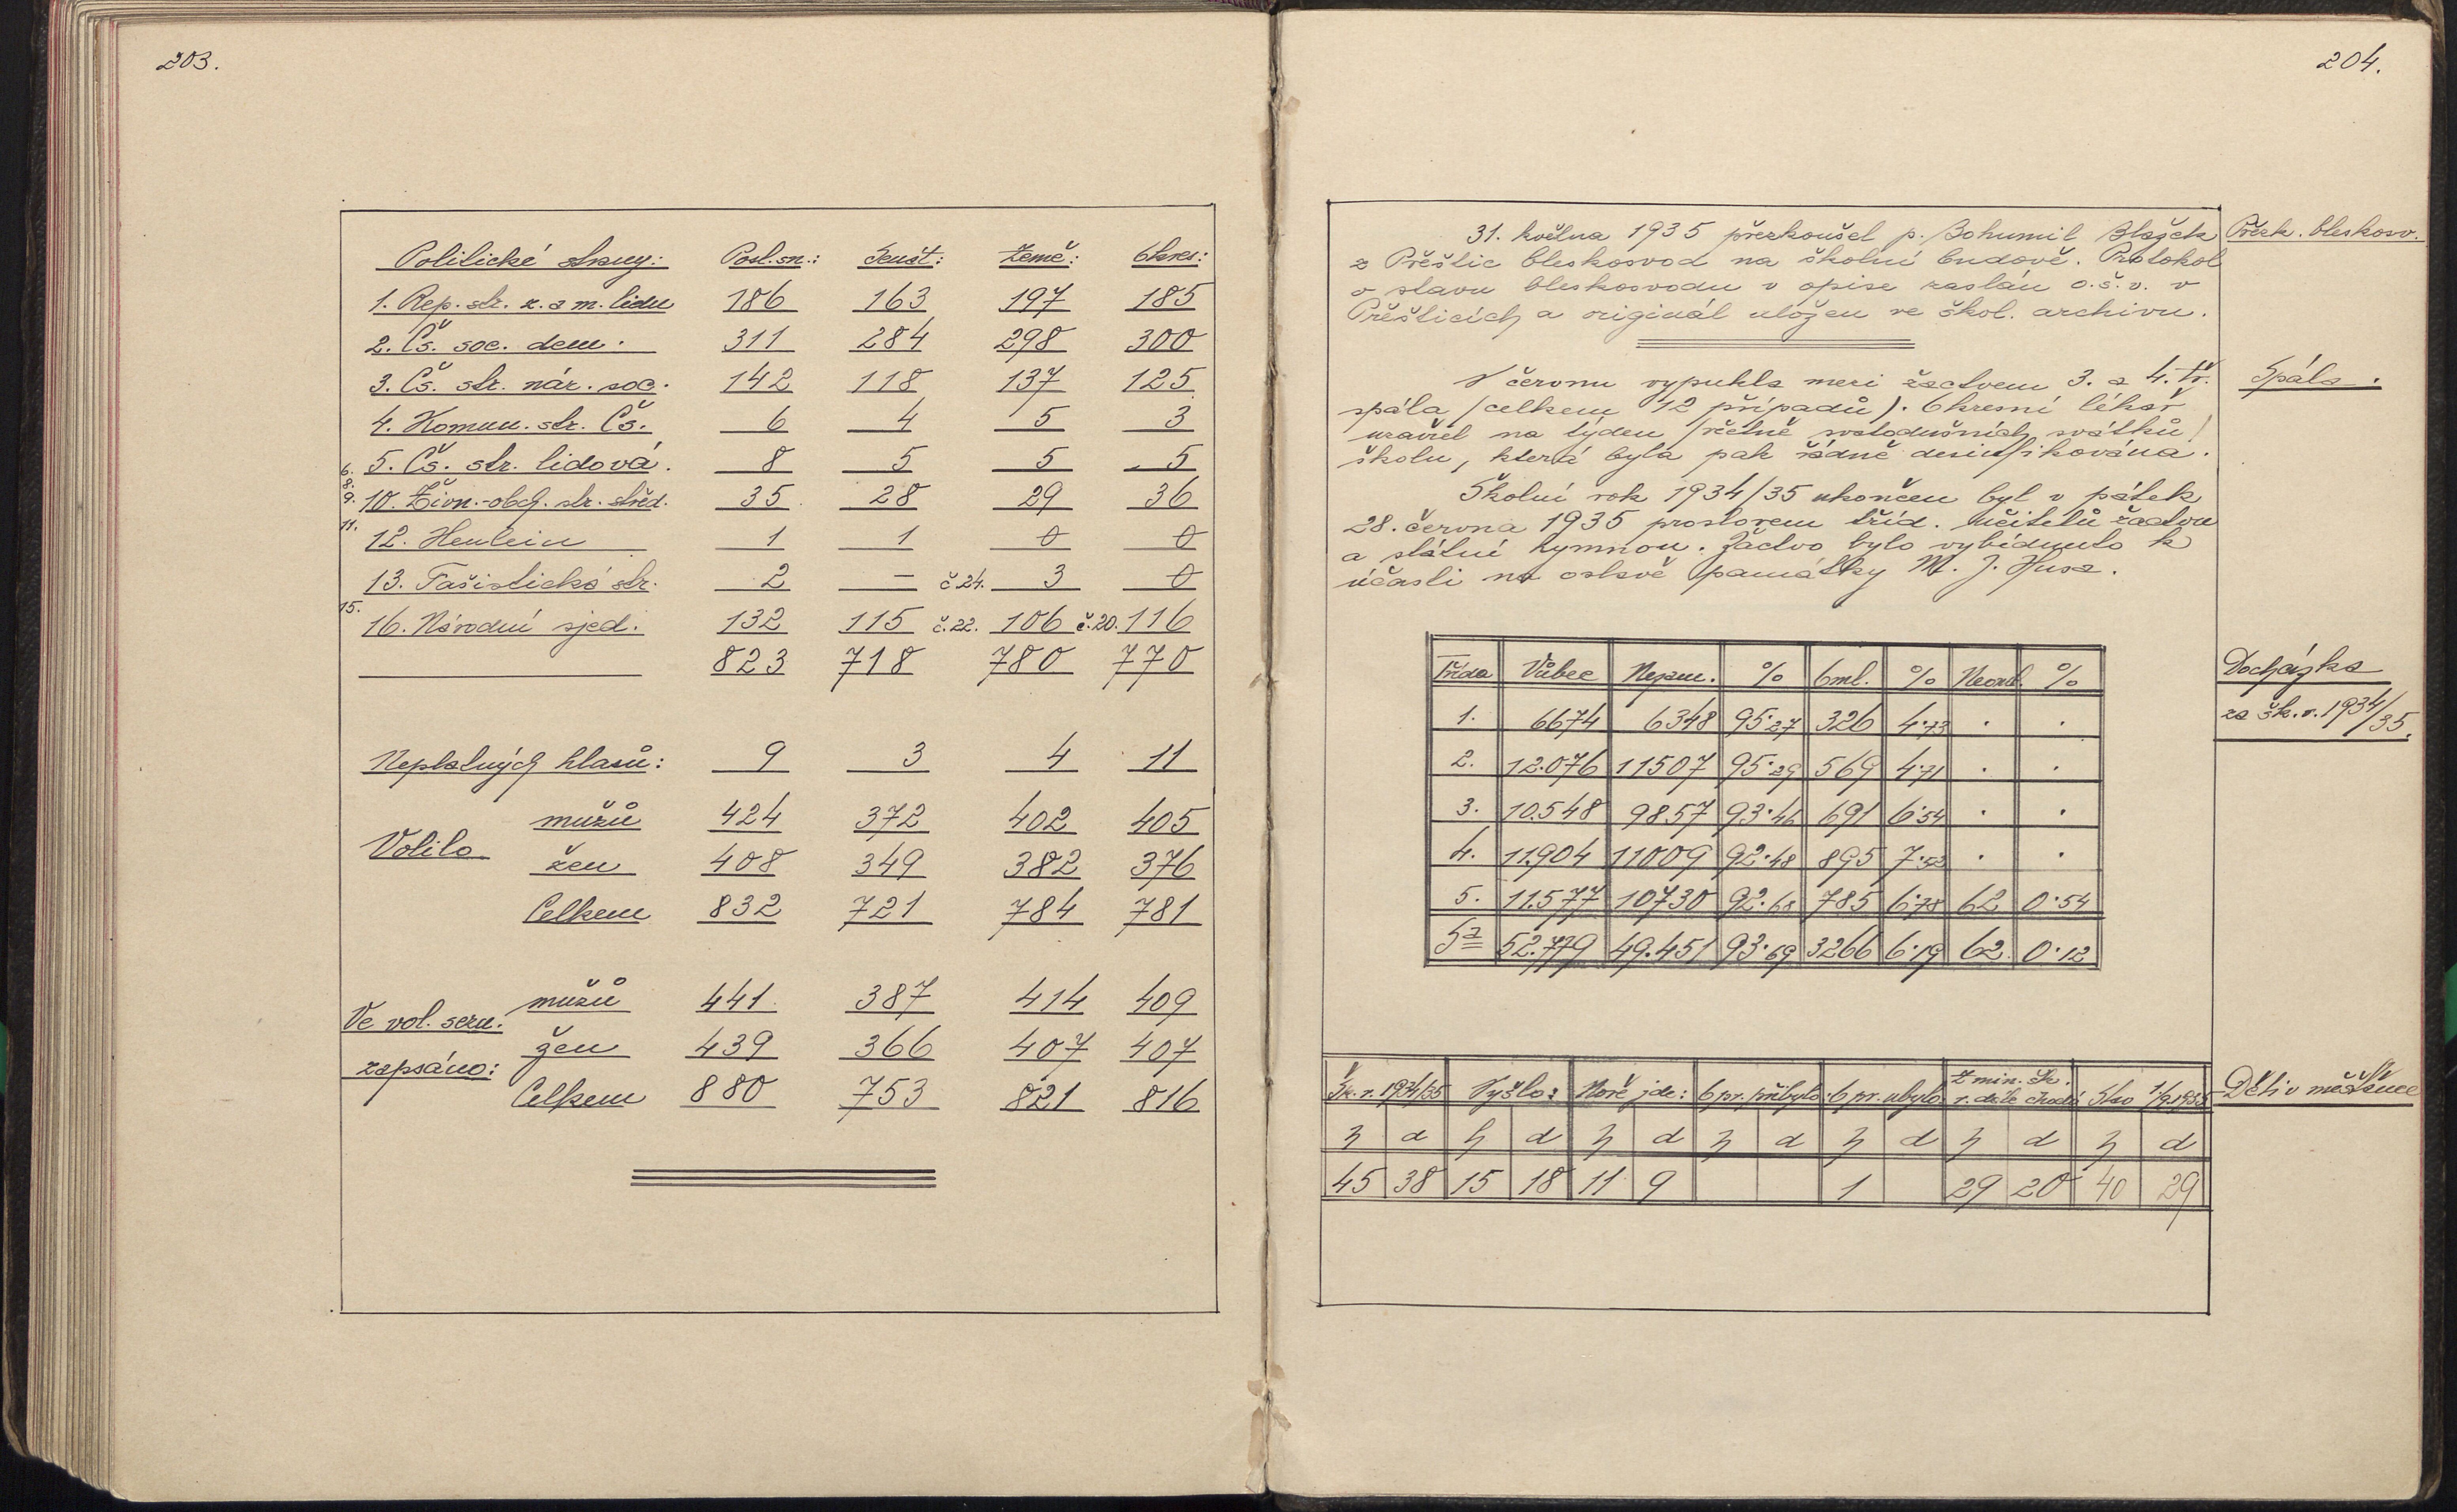 203.
Politické strany: Posl. sn.: Senát: Země: Okres:
1. Rep. str. z. a m. lidu 186 163 197 185
2. Čs. soc. dem. 311 284 298 300
3. Čs. str. nár. soc. 142 118 137 125
4. Komun. str. Čs. 6 4 5 3
6. 5. Čs. str. lidová. 8 5 5 5
8. 9. 10. Živn.-obch. str. střed. 35 28 29 36
11. 12. Henlein 1 1 0 0
13. Fašistická str. 2 — č 24. 3 0
15. 16. Národní sjed. 132 115 č. 22. 106 č. 20. 116
823 718 780 770
Neplatných hlasů: 9 3 4 11
mužů 424 372 402 405
Volilo žen 408 349 382 376
Celkem 832 721 784 781
mužů 441 387 414 409
Ve vol. sezn.
žen 439 366 407 407
zapsáno:
Celkem 880 753 821 816
204.
31. května 1935 přezkoušel p. Bohumil Blažek
z Přeštic bleskosvod na školní budově. Protokol
o stavu bleskosvodu v opise zaslán o. š. v. v
Přešticích a originál uložen ve škol. archivu.
Přezk. bleskosv.
V červnu vypukla mezi žactvem 3. a 4. tř.
spála (celkem 12 případů). Okresní lékař
uzavřel na týden (včetně svatodušních svátků)
školu, která byla pak řádně desinfikována.
Spála.
Školní rok 1934/35 ukončen byl v pátek
28. června 1935 proslovem tříd. učitelů žactvu
a státní hymnou. Žactvo bylo vybídnuto k
účasti na oslavě památky M. J. Husa.
Třída Vůbec Nezam. % Oml. % Neoml. %
1. 6674 6348 95·27 326 4·73 . .
2. 12.076 11507 95·29 569 4·71 . .
3. 10.548 9857 93·46 691 6·54 . .
4. 11.904 11009 92·48 895 7·52 . .
5. 11.577 10730 92·68 785 6·78 62 0·54
Sa 52.779 49.451 93·69 3266 6·19 62 0·12
Docházka
za šk. r. 1934/35.
Šk. r. 1934/35 Vyšlo: Nově jde: O pr. přibylo: O pr. ubylo Z min. šk. r. dále chodí Stav 1/9.1935
h d h d h d h d h d h d h d
45 38 15 18 11 9 1 29 20 40 29
Děti v měšťance